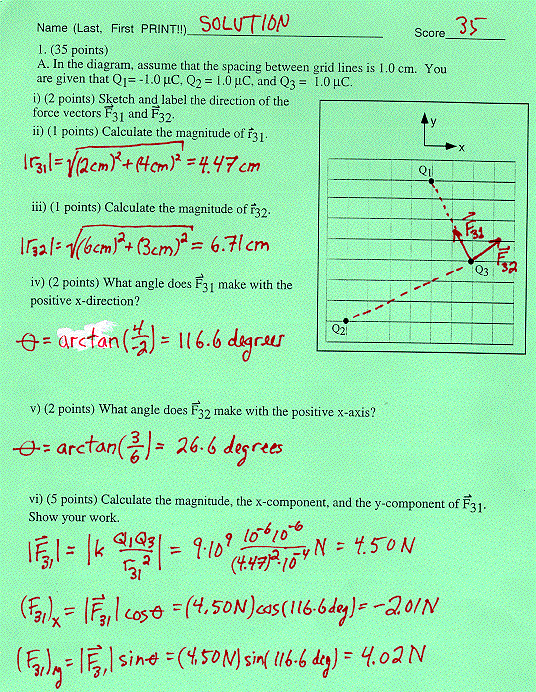 Name (Last, First PRINT!!) SOLUTION
Score 35
1. (35 points)
A. In the diagram, assume that the spacing between grid lines is 1.0 cm. You
are given that Q1= -1.0 μC, Q2 = 1.0 μC, and Q3 = 1.0 μC.
i) (2 points) Sketch and label the direction of the
force vectors F⃗31 and F⃗32.
ii) (1 points) Calculate the magnitude of r⃗31.
|r⃗31| = √((2cm)² + (4cm)²) = 4.47 cm
iii) (1 points) Calculate the magnitude of r⃗32.
|r⃗32| = √((6cm)² + (3cm)²) = 6.71 cm
iv) (2 points) What angle does F⃗31 make with the
positive x-direction?
θ = arctan(4/-2) = 116.6 degrees
y
x
Q1
F⃗31
F⃗32
Q3
Q2
v) (2 points) What angle does F⃗32 make with the positive x-axis?
θ = arctan(3/6) = 26.6 degrees
vi) (5 points) Calculate the magnitude, the x-component, and the y-component of F⃗31.
Show your work.
|F⃗31| = |k Q1Q3/r31²| = 9·10⁹ 10⁻⁶10⁻⁶/(4.47)²·10⁻⁴ N = 4.50 N
(F31)x = |F⃗31| cos θ = (4.50N) cos(116.6 deg) = -2.01N
(F31)y = |F⃗31| sin θ = (4.50N) sin(116.6 deg) = 4.02 N